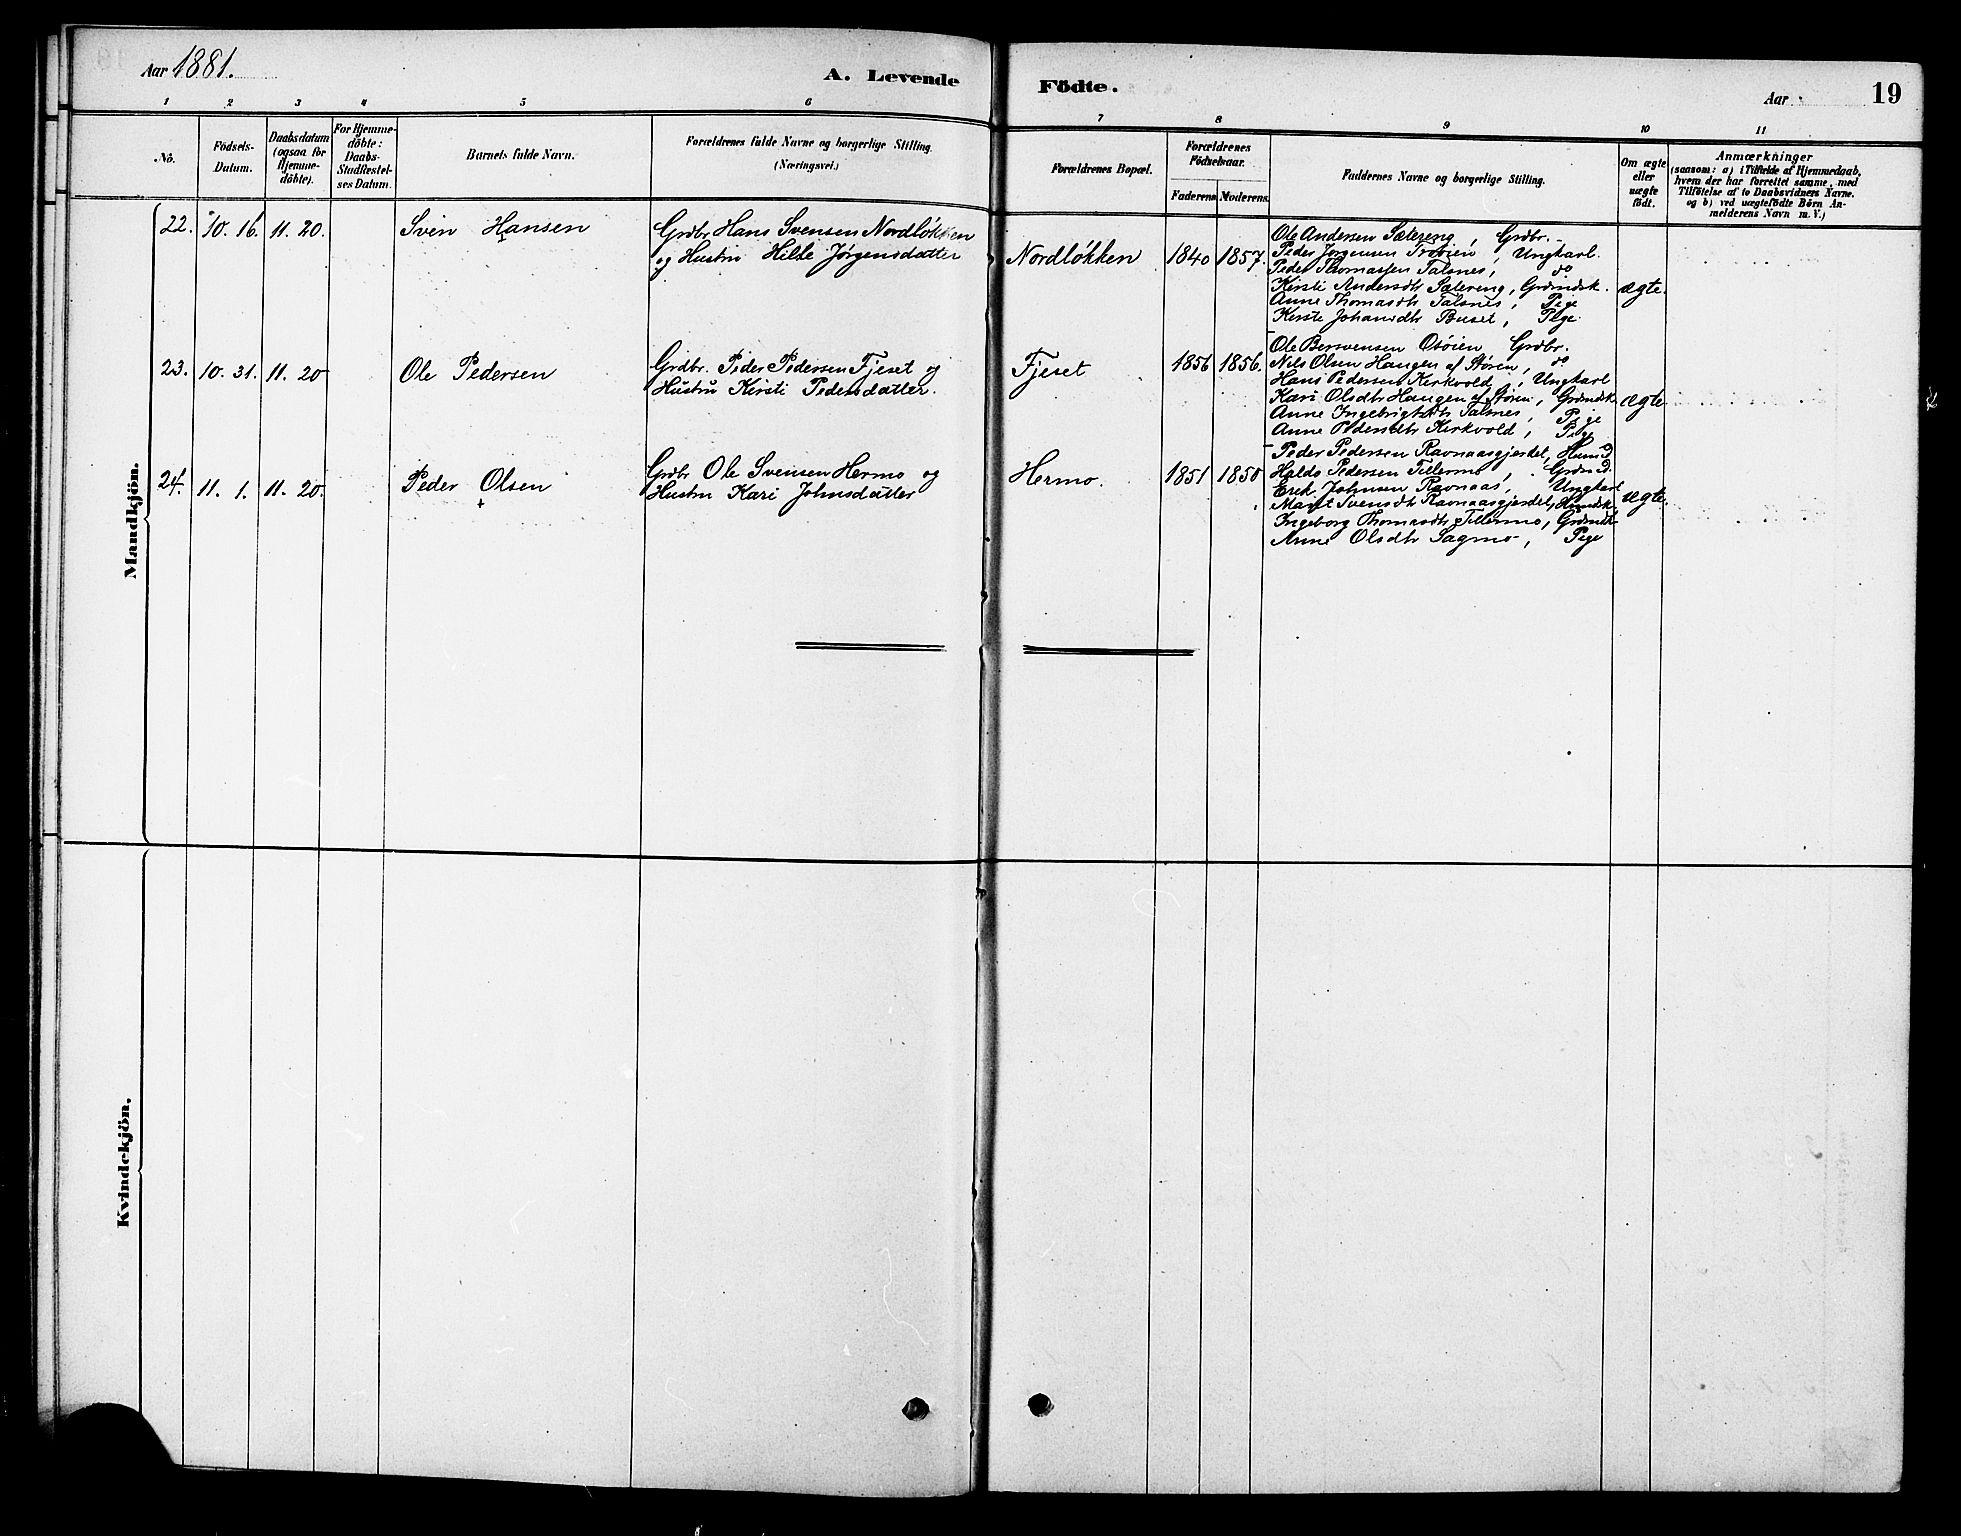 Aar 1881.
A. Levende
Födte.
Aar
19
1 2 3 4 5 6 7 8 9 10 11
No.
Födsels-
Datum.
Daabsdatum
(ogsaa for
Hjemme-
döbte).
For Hjemme-
döbte:
Daabs-
Stadfæstel-
ses Datum.
Barnets fulde Navn.
Forældrenes fulde Navne og borgerlige Stilling.
(Næringsvei.)
Forældrenes Bopæl.
Forældrenes
Födselsaar.
Faderens. Moderens.
Faddernes Navne og borgerlige Stilling.
Om ægte
eller
uægte
født.
Anmærkninger
(saasom: a) i Tilfælde af Hjemmedaab,
hvem der har forrettet samme, med
Tilföielse af to Daabsvidners Navne.
og b) ved uægtefödte Börn An-
melderens Navn m. V.)
Mandkjön.
22. 10. 16. 11. 20. Sven Hansen
Grdbr Hans Svensen Nordløkken
og Hustru Jørgensdatter
Nordløkken 1840 1857.
Ole Andersen Sætereng, Grdbr.
Peder Jørgensen, Ungkarl.
Peder Thomassen Talsnes, do
Kirsti Andersdtr Sætereng, Grdmdsk.
Anne Thomasdtr Talsnes, Pige
Kirste Johansdtr Buset, Pige.
ægte.
23. 10. 31. 11. 20 Ole Pedersen
Grdbr. Peder Pedersen Fjeset og
Hustru Kirsti Pedersdatter.
Fjeset 1856 1856.
Ole Bersvensen Grdbr.
Nils Olsen Haugen af Støren, do
Hans Pedersen Kirkvold, Ungkarl
Kari Olsdtr Haugen af Støren, Grdmdsk.
Anne Ingebrigtsdtr Talsnes, Pige
Anne Pedersdtr Kirkvold, Pige
ægte
24. 11. 1. 11. 20. Peder Olsen
+
Grdbr Ole Svensen Hermo og
Hustru Kari Johnsdatter
Hermo. 1851 1850
Peder Pedersen Ravnaasgjerdet, Husmd
Haldo Pedersen Tillermo, Grdmd.
Erik Johnsen Ravnaas, Ungkarl
Marit Svensdtr Ravnaasgjerdet, Husmdsk.
Ingeborg Thomasdtr Tillermo, Grdmdk
Anne Olsdtr Sagmo, Pige
ægte.
Kvindekjön.